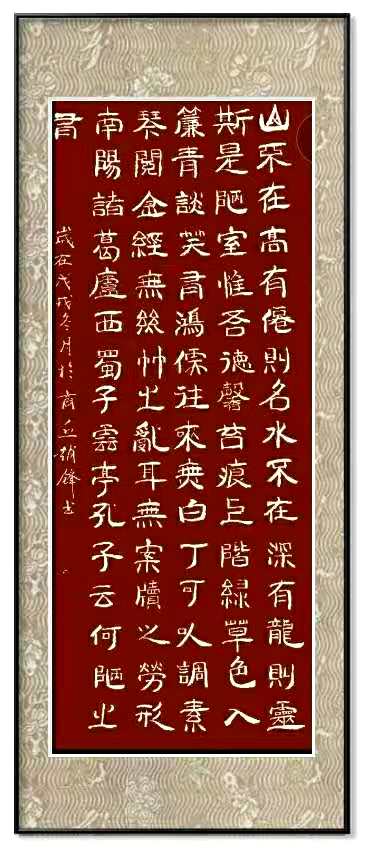 山不在高有僊則名水不在深有龍則靈
斯是陋室惟吾德馨苔痕上階綠草色入
簾青談笑有鴻儒往來無白丁可以調素
琴閱金經無絲竹之亂耳無案牘之勞形
南陽諸葛廬西蜀子雲亭孔子云何陋之
有
歲在戊戌冬月於商丘趙鋒书